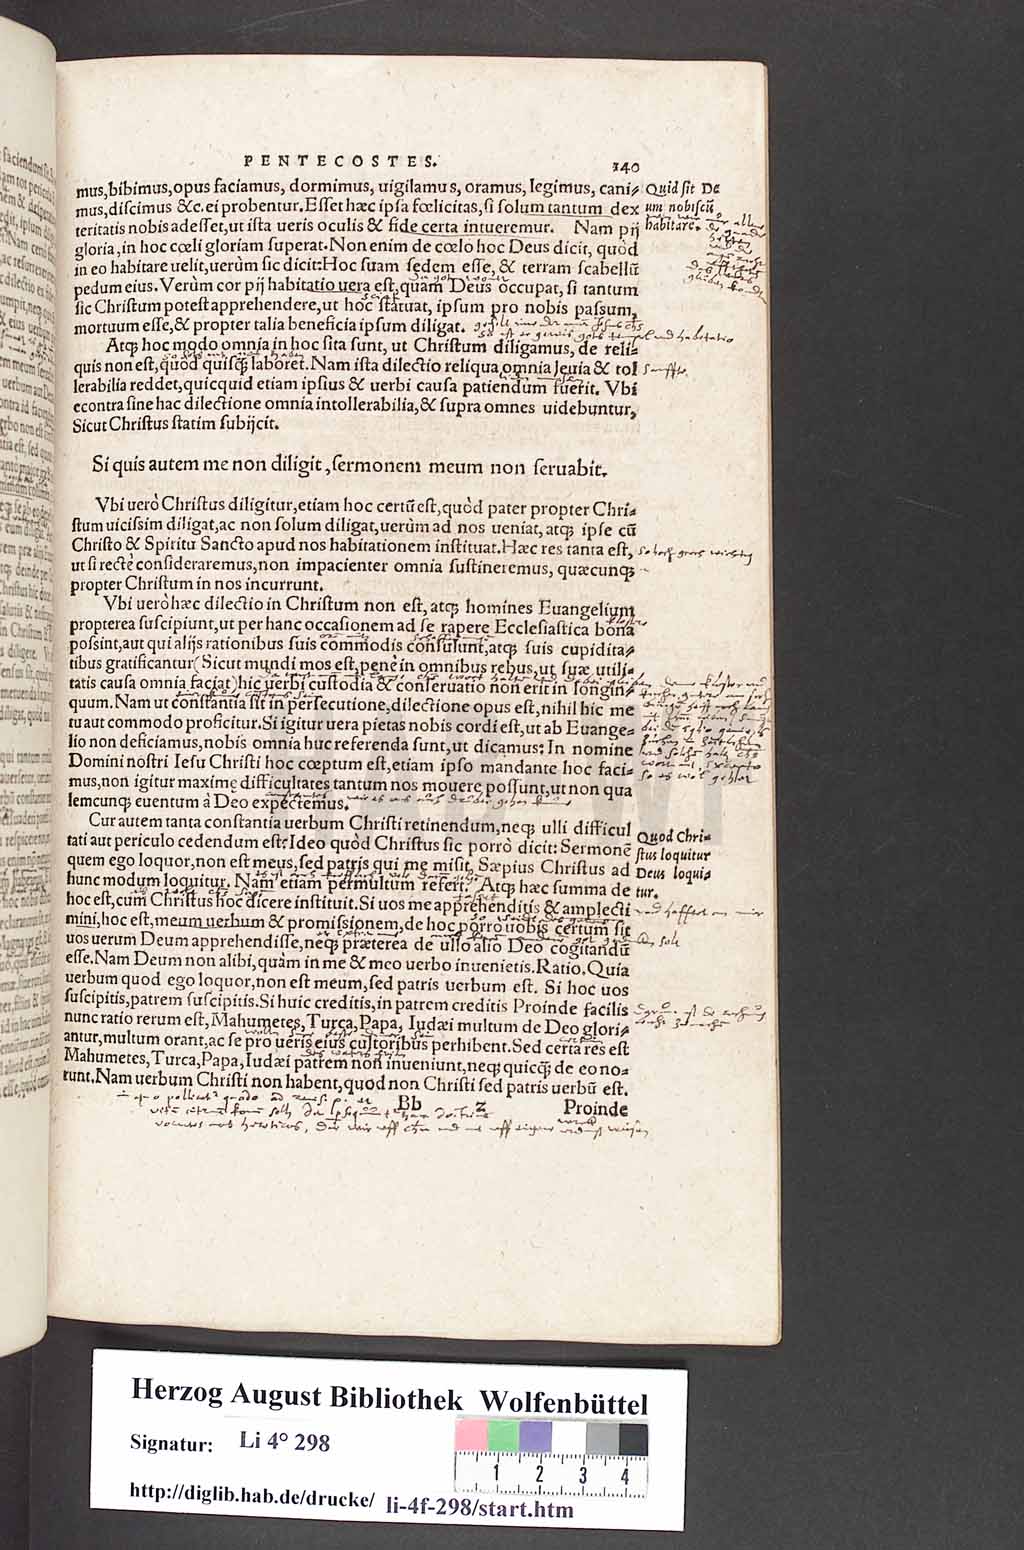 PENTECOSTES.
340
mus,bibimus,opus faciamus, dormimus, uigilamus, oramus, legimus, cani-
mus,discimus &c.ei probentur.Esset hæc ipsa fœlicitas,si solum tantum dex
teritatis nobis adesset,ut ista ueris oculis & fide certa intueremur. Nam pij
gloria,in hoc cœli gloriam superat.Non enim de cœlo hoc Deus dicit, quòd
in eo habitare uelit,uerùm sic dicit:Hoc suam sedem esse, & terram scabellū
pedum eius.Verùm cor pij habitatio uera est,quàm Deus occupat, si tantum
sic Christum potest apprehendere,ut hoc statuat, ipsum pro nobis passum,
mortuum esse,& propter talia beneficia ipsum diligat.
Quid sit De
um nobiscū
habitare.
Atq; hoc modo omnia in hoc sita sunt, ut Christum diligamus, de reli-
quis non est,quòd quisq̃ laboret.Nam ista dilectio reliqua omnia leuia & tol
lerabilia reddet,quicquid etiam ipsius & uerbi causa patiendum fuerit. Vbi
econtra sine hac dilectione omnia intollerabilia,& supra omnes uidebuntur,
Sicut Christus statim subijcit.
Si quis autem me non diligit,sermonem meum non seruabit.
Vbi uerò Christus diligitur,etiam hoc certū est,quòd pater propter Chri-
stum uicissim diligat,ac non solum diligat,uerùm ad nos ueniat, atq; ipse cū
Christo & Spiritu Sancto apud nos habitationem instituat.Hæc res tanta est,
ut si rectè consideraremus,non impacienter omnia sustineremus, quæcunq;
propter Christum in nos incurrunt.
Vbi uerò hæc dilectio in Christum non est, atq; homines Euangelium
propterea suscipiunt,ut per hanc occasionem ad se rapere Ecclesiastica bona
possint,aut qui alijs rationibus suis commodis consulunt,atq; suis cupidita-
tibus gratificantur(Sicut mundi mos est,penè in omnibus rebus,ut suæ utili-
tatis causa omnia faciat)hic uerbi custodia & conseruatio non erit in longin-
quum.Nam ut constantia sit in persecutione,dilectione opus est,nihil hic me
tu aut commodo proficitur.Si igitur uera pietas nobis cordi est,ut ab Euange-
lio non deficiamus,nobis omnia huc referenda sunt,ut dicamus: In nomine
Domini nostri Iesu Christi hoc cœptum est,etiam ipso mandante hoc faci-
mus,non igitur maximę difficultates tantum nos mouere possunt,ut non qua
lemcunq; euentum à Deo expectemus.
Cur autem tanta constantia uerbum Christi retinendum,neq; ulli difficul
tati aut periculo cedendum est? Ideo quòd Christus sic porrò dicit: Sermonē
quem ego loquor,non est meus,sed patris qui me misit. Sæpius Christus ad
hunc modum loquitur. Nam etiam permultum refert. Atq; hæc summa de
hoc est,cum Christus hoc dicere instituit.Si uos me apprehenditis & amplecti
mini,hoc est,meum uerbum & promissionem,de hoc porrò uobis certum sit
uos uerum Deum apprehendisse,neq; præterea de ullo alio Deo cogitandū
esse.Nam Deum non alibi,quàm in me & meo uerbo inuenietis.Ratio. Quia
uerbum quod ego loquor,non est meum,sed patris uerbum est. Si hoc uos
suscipitis,patrem suscipitis.Si huic creditis,in patrem creditis Proinde facilis
nunc ratio rerum est,Mahumetes,Turca,Papa, Iudæi multum de Deo glori-
antur,multum orant,ac se pro ueris eius cultoribus perhibent.Sed certa res est
Mahumetes,Turca,Papa,Iudæi patrem non inueniunt,neq; quicq̃ de eo no-
runt.Nam uerbum Christi non habent,quod non Christi sed patris uerbū est.
Quod Chri-
stus loquitur
Deus loqui-
tur.
Bb 2 Proinde
Herzog August Bibliothek Wolfenbüttel
Signatur: Li 4° 298
1 2 3 4
http://diglib.hab.de/drucke/ li-4f-298/start.htm